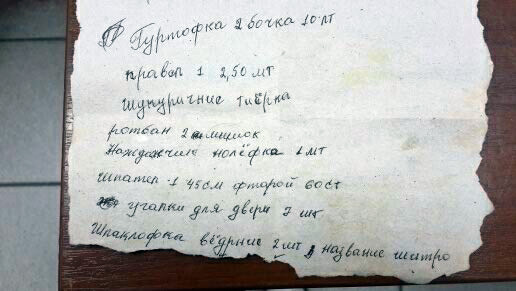 Гуртофка 2 бочка 10 лт
правел 1 2,50 мт
шукуричние тиёрка
ротбан 2 мишок
Наждачние нолёфка 1 мт
шпател 1 45см фторой 60ст
учапки для двери 7 шт
Шпаклофка ведрние 2 шт название шитро